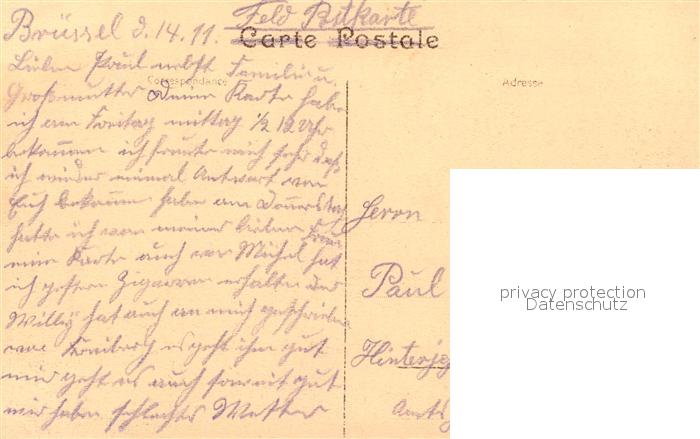 Feld Postkarte
Brüssel d. 14. 11.
Carte Postale
Correspondance
Adresse
Lieber Paul nebst Familie u.
Großmutter Deine Karte habe
ich am Freitag mittag 1/2 12 Uhr
bekommen ich freute mich sehr daß
ich wieder einmal Antwort von
Euch bekomme habe am Donnerstag
hatte ich von meiner lieben Frau
eine Karte auch von Michel hat
ich gestern Zigarren erhalten der
Willy hat auch an mich geschrieben
von es geht ihm gut
mir geht es auch soweit gut
wir haben schlechtes Wetter
Herrn
Paul
privacy protection
Datenschutz